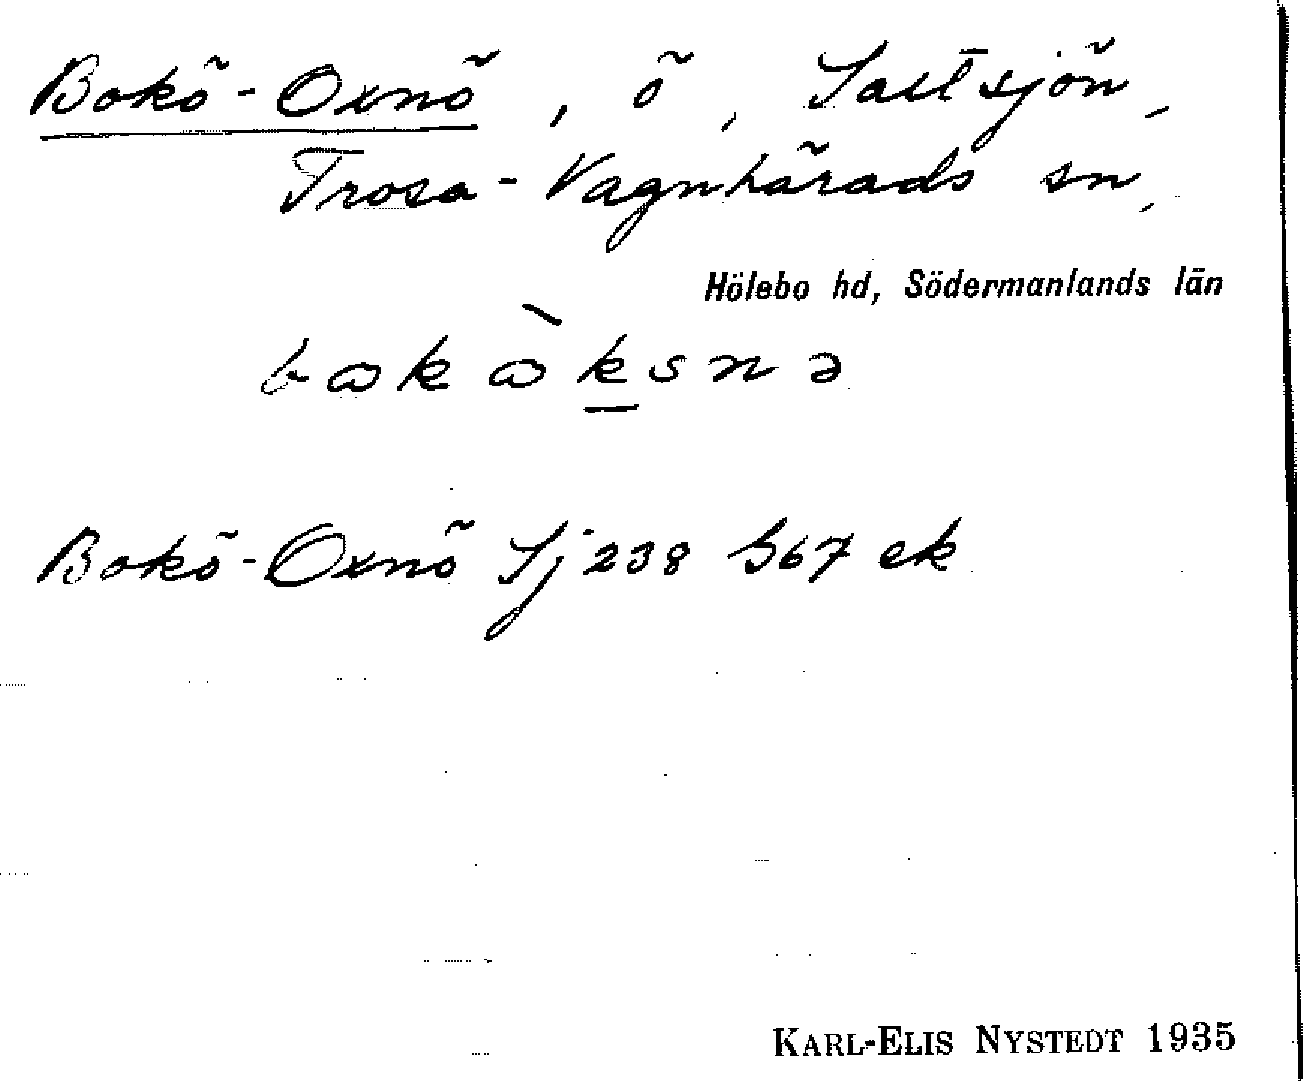 Bokö-Oxnö, ö, Saltsjön,
Trosa-Vagnhärads sn,
Hölebo hd, Södermanlands län
bωkὼksnə
Bokö-Oxnö Sj 238 b67 ek
KARL-ELIS NYSTEDT 1935